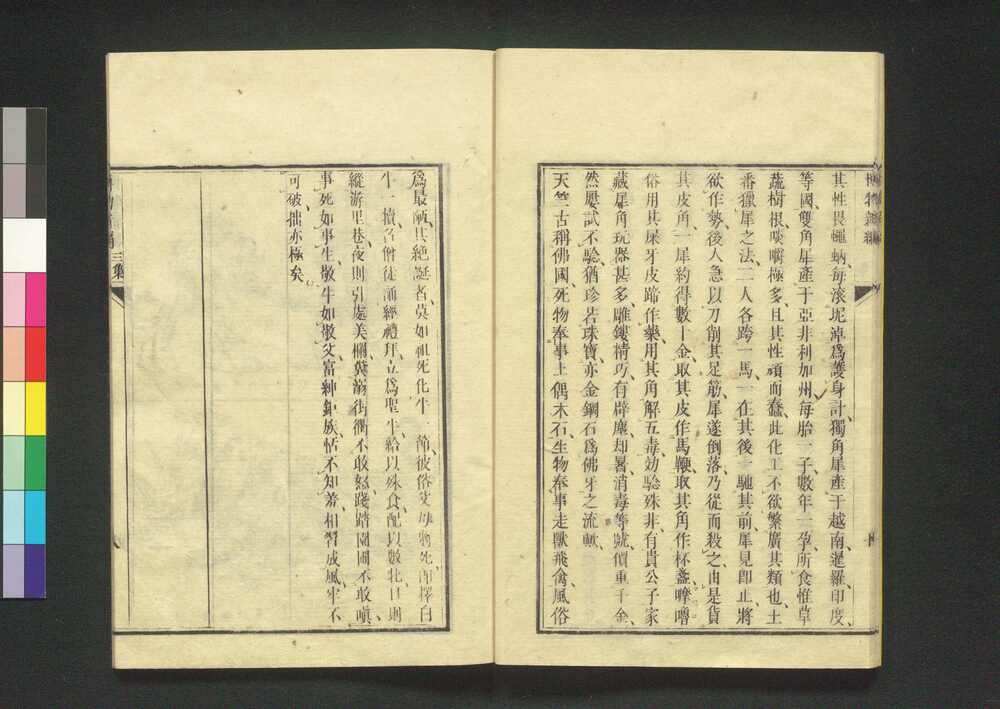 博物新編
其性畏蠅蚋每滾坭淖爲護身計獨角犀產于越南暹羅印度
等國雙角犀產于亞非利加州每胎一子數年一孕所食惟草
蔬樹根喫嚼極多且其性頑而蠢此化工不欲繁廣其類也土
番獵犀之法二人各跨一馬一在其後一馳其前犀見卽止將
欲作勢後人急以刀削其足筋犀遂倒落乃從而殺之由是貨
其皮角一犀約得數十金取其皮作馬鞭取其角作杯盞嚤嚕
俗用其屎牙皮蹄作藥用其角解五毒効驗殊非有貴公子家
藏犀角玩器甚多雕鏤精巧有辟塵却暑消毒等號價重千金
然屢試不驗猶珍若珠寶亦金鋼石爲佛牙之流歟
天竺古稱佛國死物奉事土偶木石生物奉事走獸飛禽風俗
爲最陋其絕誕者莫如祖死化牛一節彼俗父母物死卽擇白
牛一犢名僧徒誦經禮拜立爲聖牛給以殊食配以數牝日則
縱游里巷夜則引處美欄糞溺街衢不敢怒踐踏園圃不敢嗔
事死如事生敬牛如敬父富紳鉅族恬不知羞相習成風牢不
可破拙亦極矣
三集